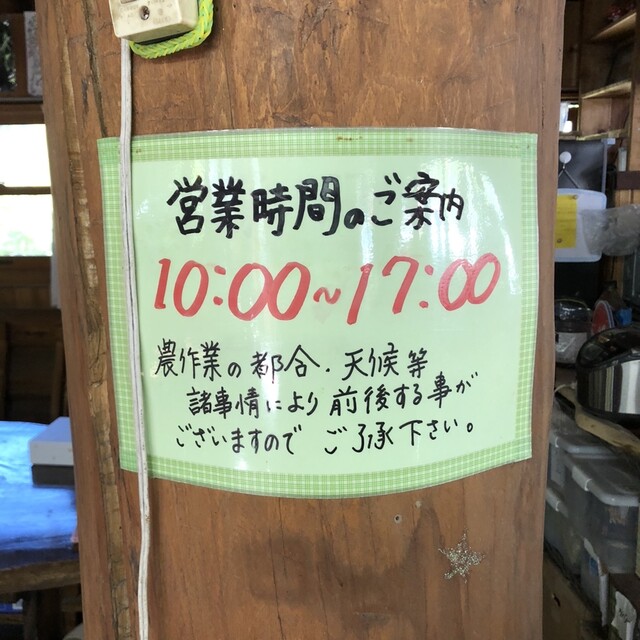 営業時間のご案内
10:00~17:00
農作業の都合.天候等
諸事情により前後する事が
ございますので ご了承下さい。